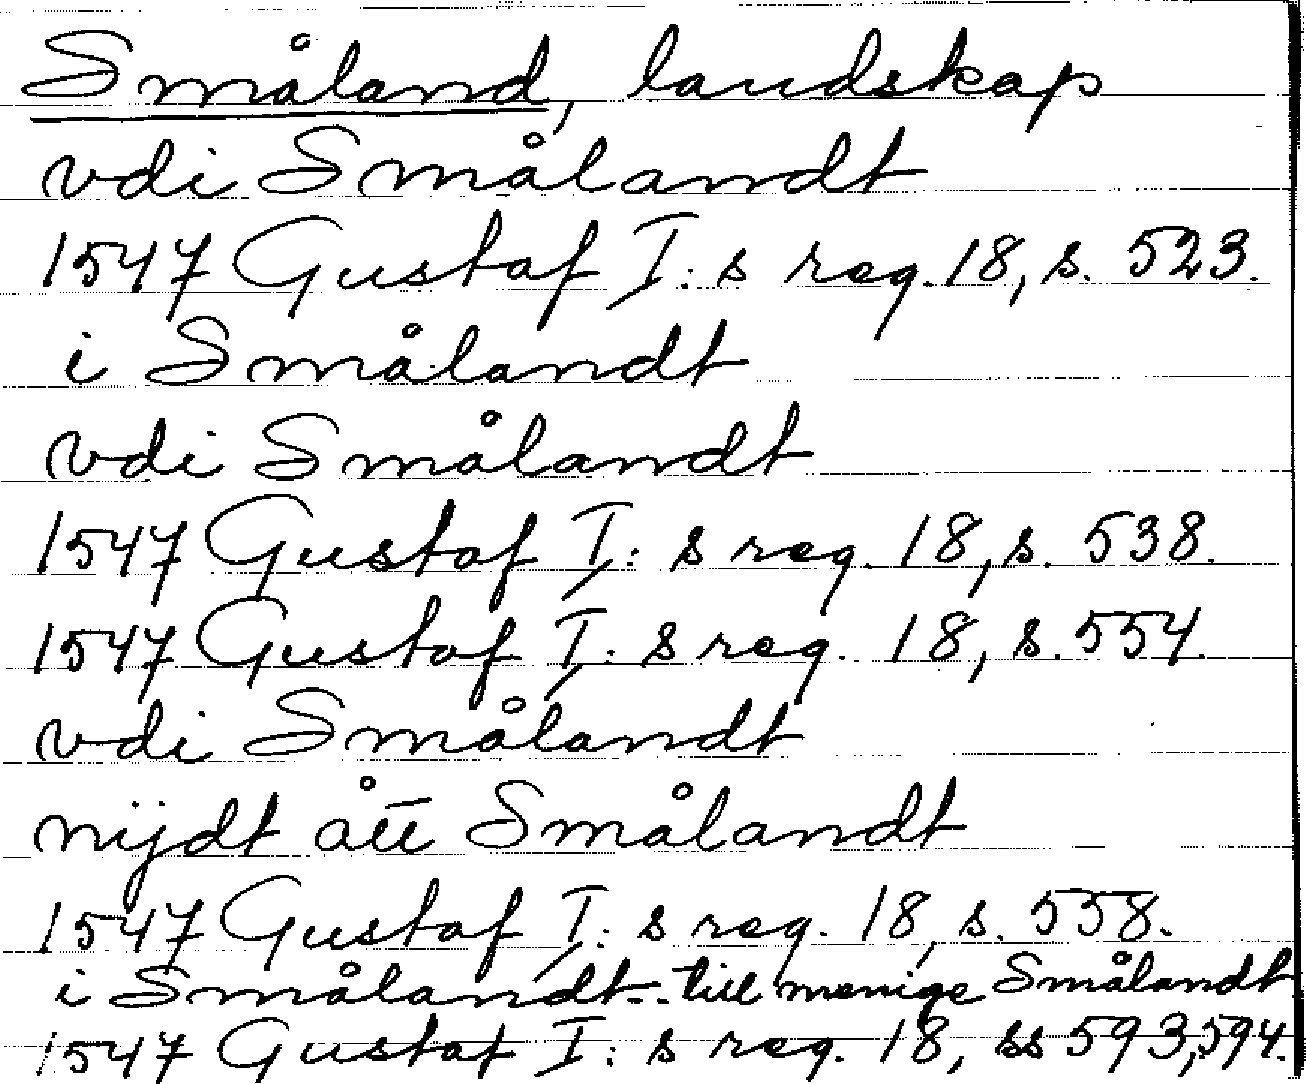 Småland, landskap
vdi Smålandt
1547 Gustaf I:s reg. 18, s. 523.
i Smålandt
vdi Smålandt
1547 Gustaf I:s reg. 18, s. 538.
1547 Gustaf I:s reg. 18, s. 554.
vdi Smålandt
nijdt ått Smålandt
1547 Gustaf I:s reg. 18, s. 558.
i Smålandt - till menige Smålandt
1547 Gustaf I:s reg. 18, ss 593, 594.